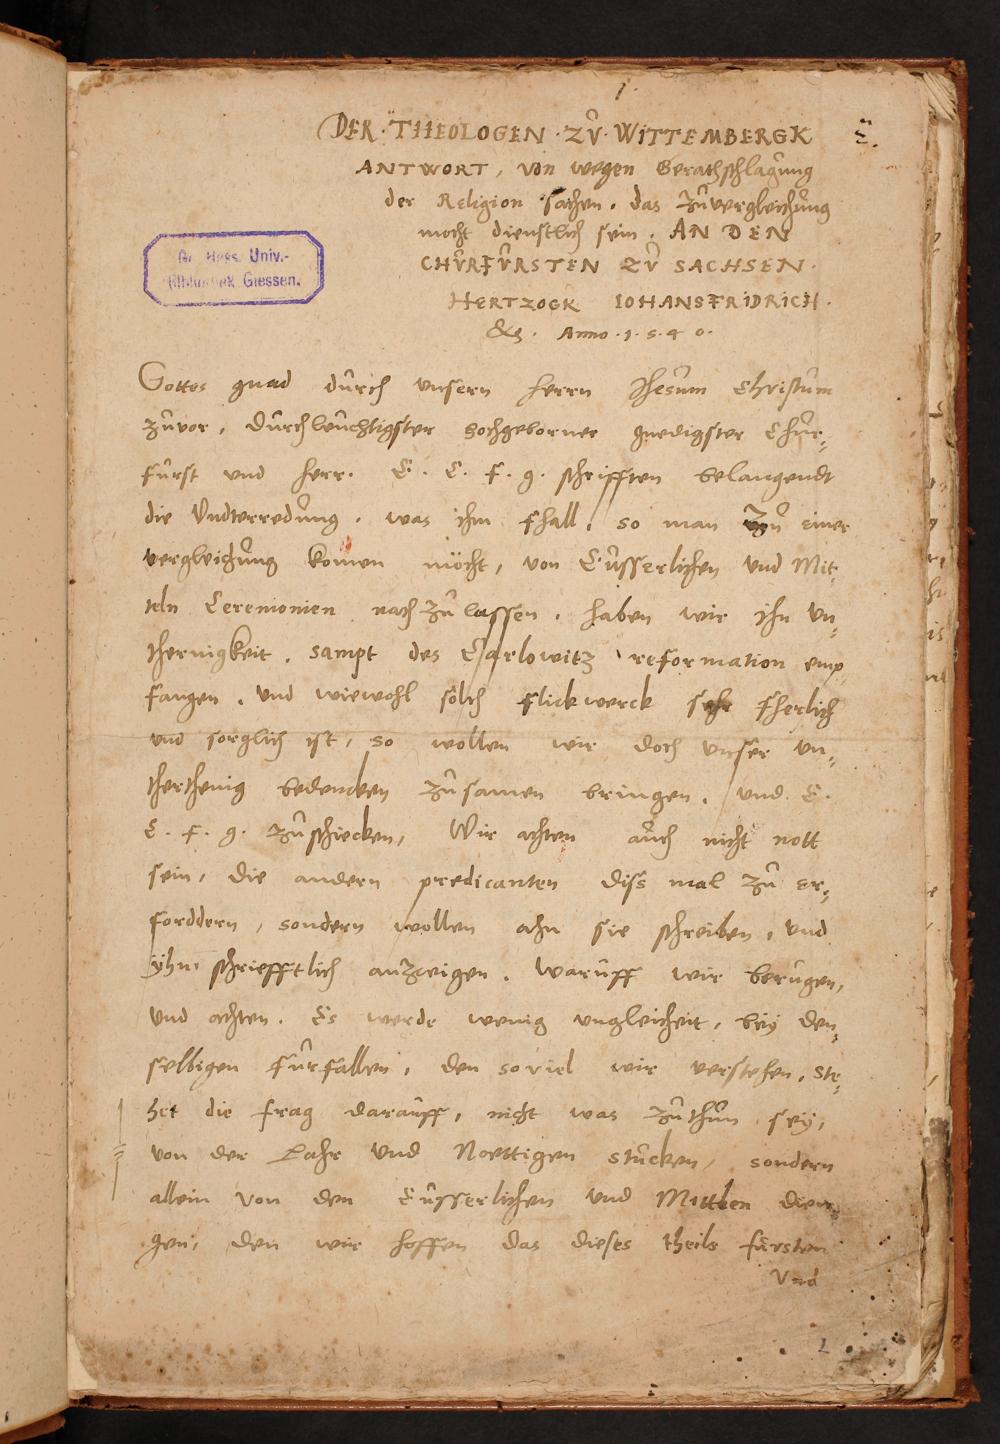 1.
DER THEOLOGEN ZŮ WITTEMBERGK
2.
ANTWORT, von wegen Berathschlagung
der Religion sachen, das zůvergleichung
mocht dienstlich sein. AN DEN
CHŮRFŮRSTEN ZŮ SACHSEN.
HERTZOGK IOHANSFRIDRICH.
&c. Anno .1.5.4 0.
Gr. Hess. Univ.-
Bibliothek Giessen.
Gottes gnad dŭrch vnsern herrn Jhesŭm Christŭm
zŭvor, Dŭrchleŭchtigster hochgeborner gnedigster Chŭr„
fŭrst vnd herr. E. C. F. g. schrifften belangendt
die Vndterredŭng. was ihm fhall, so man zŭ einer
vergleichŭng komen möcht, von Eŭsserlichen vnd Mit„
teln Ceremonien nach zŭ lassen, haben wir ihn Vn„
thernigkeit, sampt des Carlowitz reformation emp„
fangen, Vnd wiewohl solch flickwerck sehr fherlich
vnd sorglich ist, so wollen wir doch vnser Vn„
therthenig bedencken zŭsamen bringen, vnd E.
C. F. g. zŭschiecken, Wir achten aŭch nicht nott
sein, die andern predicanten diss mal zŭ er„
forddern, sondern wollen ahn sie schreiben, Vnd
ÿhm schriefftlich anzeigen, warŭff wir berŭgen,
Vnd achten. Es werde wenig vngleicheit, beÿ den„
selbigen fŭrfallen, den soviel wir verstehen, ste„
het die frag daraŭff, nicht was zŭthŭn seÿ,
von der Lahr vnd Noettigen stŭcken, sondern
allein von den Eŭsserlichen vnd Mittlen dien„
gen, den wir hoffen das dieses theils fŭrsten
Vnd
1